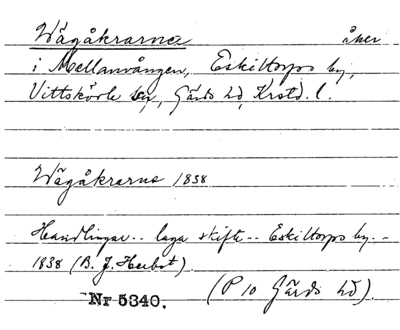 Vägåkrarna åker
i Mellanvången, Eskiltorps by,
Vittskövle sn, Gärds hd, Krstd. l.
Vägåkrarne 1838
Handlingar .. laga skifte .. Eskiltorps by ..
1838 (B. J. Herbst).
(P 10 Gärds hd).
Nr 5340.